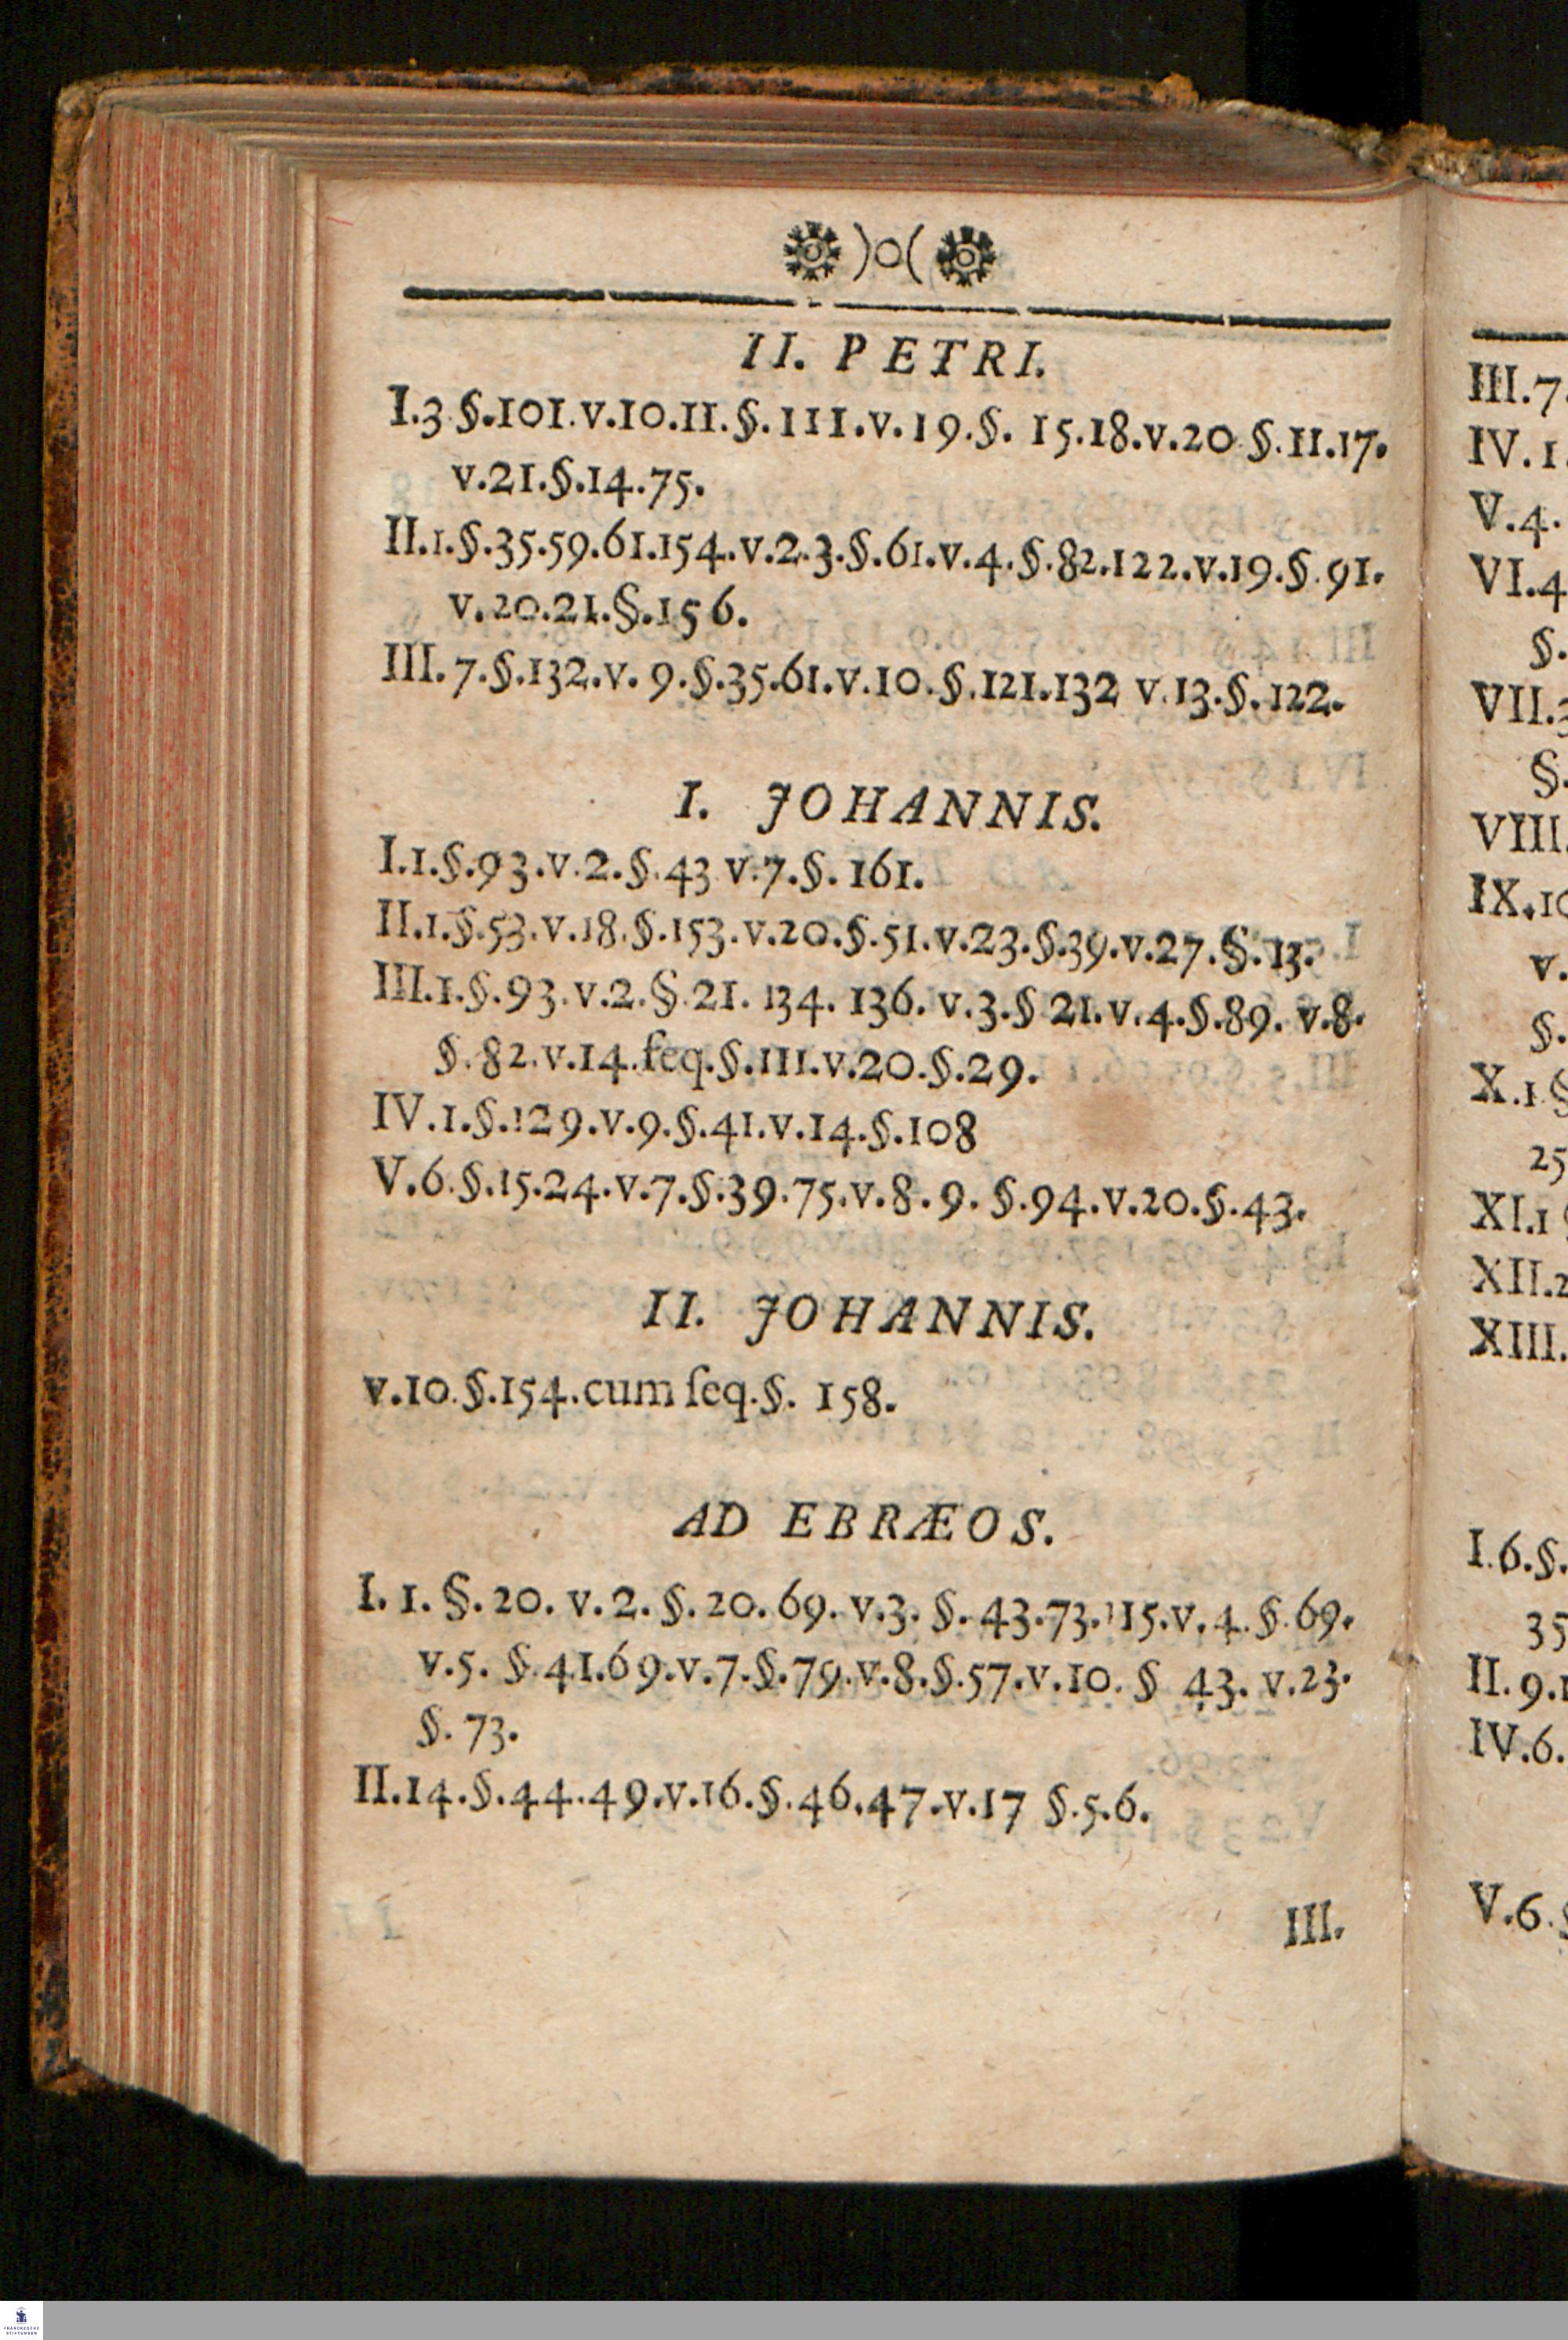 )o(
II. PETRI.
I.3 §.101.v.10.11.§.111.v.19.§. 15.18.v.20 §.11.17.
v.21.§.14.75.
II.1.§.35.59.61.154.v.2.3.§.61.v.4.§.82.122.v.19.§.91.
v.20.21.§.156.
III.7.§.132.v. 9.§.35.61.v.10.§.121.132 v.13.§.122.
I. JOHANNIS.
I.1.§.93.v.2.§.43 v.7.§. 161.
II.1.§.53.v.18.§.153.v.20.§.51.v.23.§.39.v.27.§.13.
III.1.§.93.v.2.§.21. 134. 136. v.3.§ 21.v.4.§.89. v.8.
§.82.v.14.ſeq.§.111.v.20.§.29.
IV.1.§.129.v.9.§.41.v.14.§.108
V.6.§.15.24.v.7.§.39.75.v.8.9. §.94.v.20.§.43.
II. JOHANNIS.
v.10.§.154.cum ſeq.§. 158.
AD EBRÆOS.
I. 1. §. 20. v. 2. §. 20. 69. v.3. §. 43.73.115.v.4.§.69.
v.5. §.41.69.v.7.§.79.v.8.§.57.v.10. § 43. v.23.
§. 73.
II.14.§.44.49.v.16.§.46.47.v.17 §.5.6.
III.
III.7.
IV.1.
V.4.
VI.4
§.
VII.3
§.
VIII.
IX.10
v.
§.
X.1.§
25
XI.1
XII.2
XIII.
I.6.§.
35
II.9.1
IV.6.
V.6.§
FRANCKESCHE
STIFTUNGEN